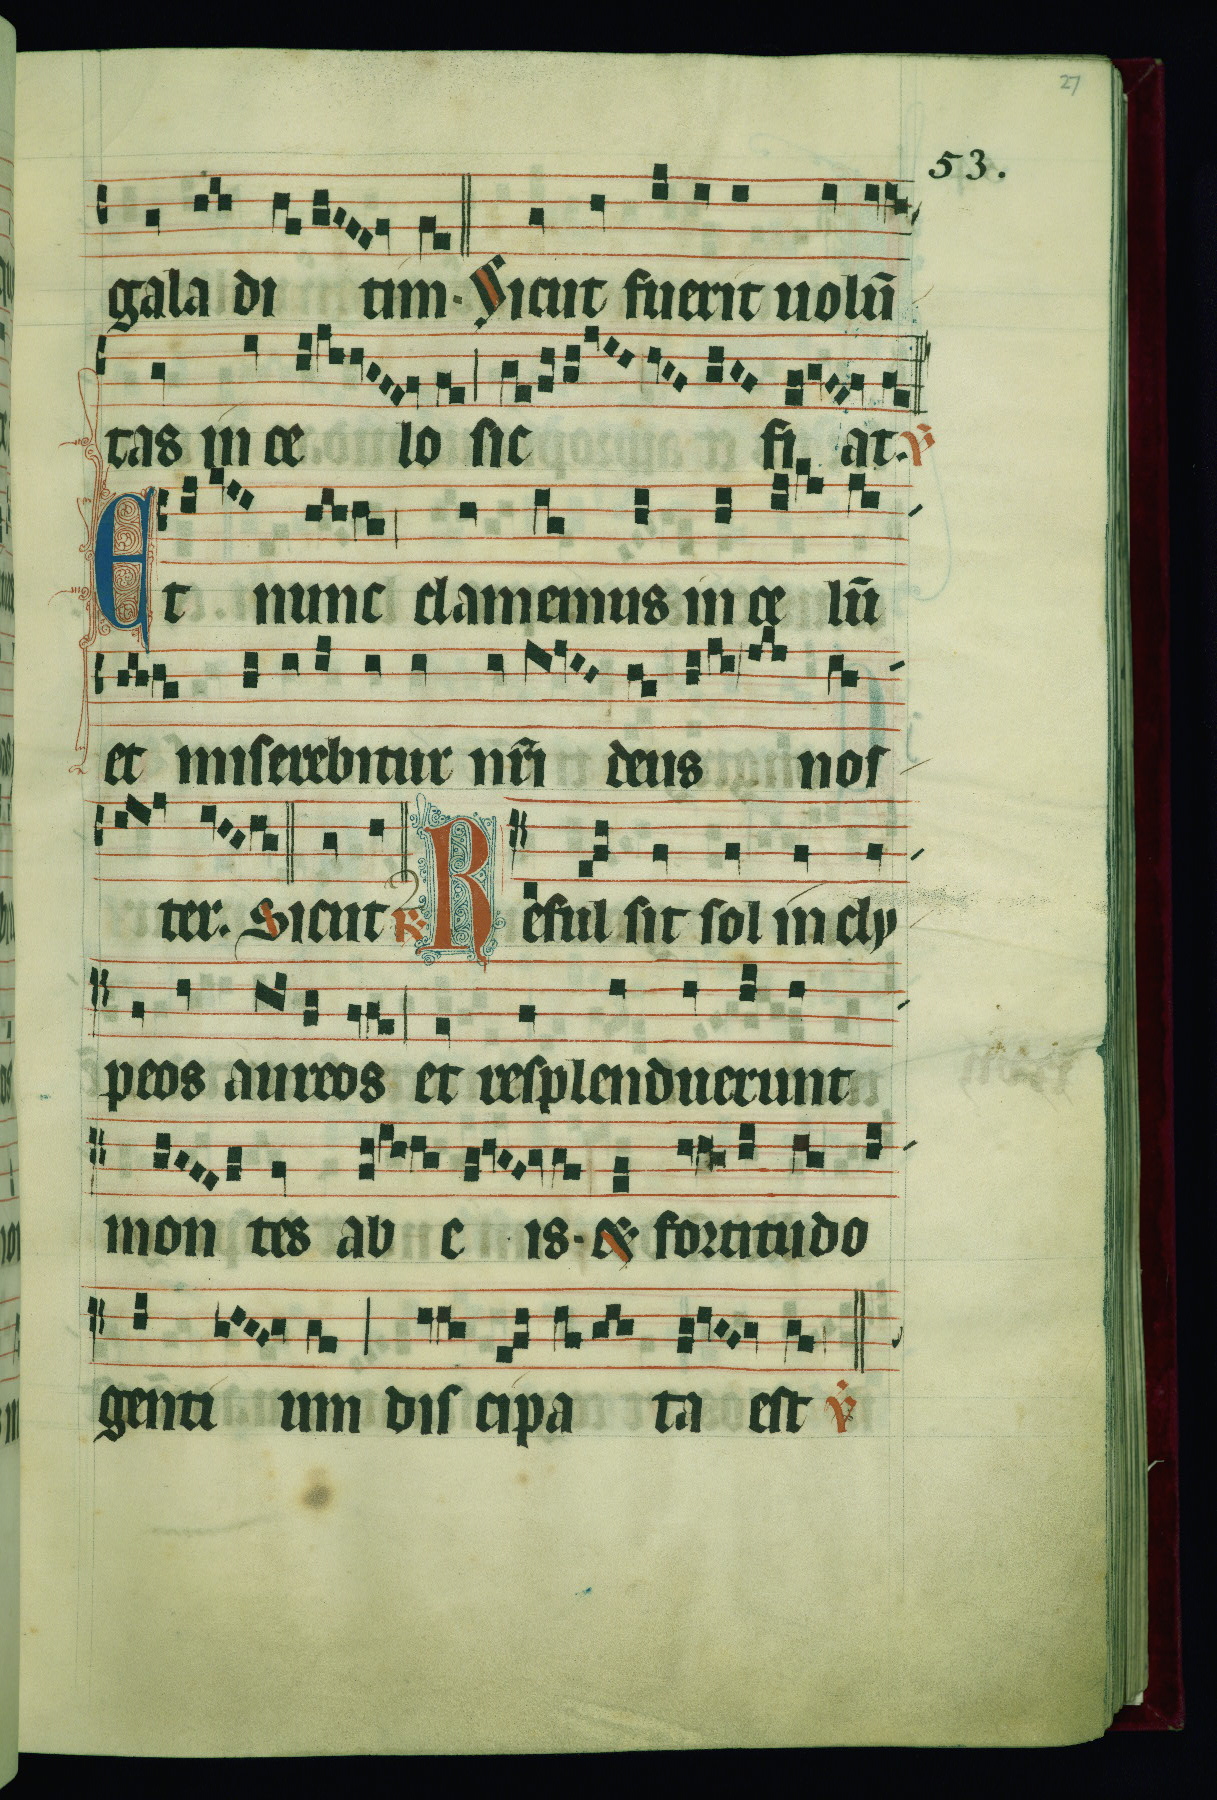 27
53.
gala di tim. Sicut fuerit uolū
tas in ce lo sic fi at. ℣
Et nunc clamemus in ce lū
et miserebitur nr̄i deus nos
ter. Sicut ℟ Reful sit sol in cly
peos aureos et resplenduerunt
mon tes ab e is. et fortitudo
genti um dis cipa ta est ℣